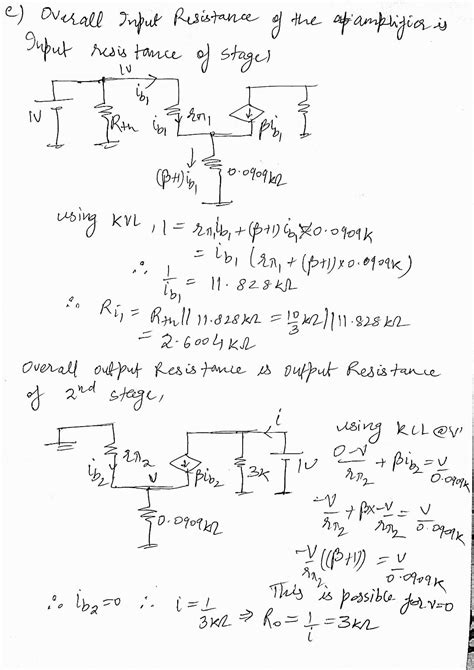 c) Overall Input Resistance of the opamplifier is
Input resistance of stage1
1V
1V
Rth
ib1
ib1
rπ1
βib1
(β+1)ib1
0.0909kΩ
using KVL, 1 = rπ1ib1 + (β+1)ib1×0.0909K
= ib1 (rπ1 + (β+1)×0.0909K)
∴ 1/ib1 = 11.828kΩ
∴ Ri1 = Rth||11.828kΩ = 10/3 kΩ||11.828kΩ
= 2.6004kΩ
Overall output Resistance is output Resistance
of 2nd stage,
ib2
rπ2
V
βib2
3K
i
1V
0.0909kΩ
using KCL @ V
0-V/rπ2 + βib2 = V/0.0909K
-V/rπ2 + β×-V/rπ2 = V/0.0909K
-V/rπ2 ((β+1)) = V/0.0909K
This is possible for V=0
∴ ib2=0 ∴ i = 1/3kΩ ⇒ Ro = 1/i = 3kΩ